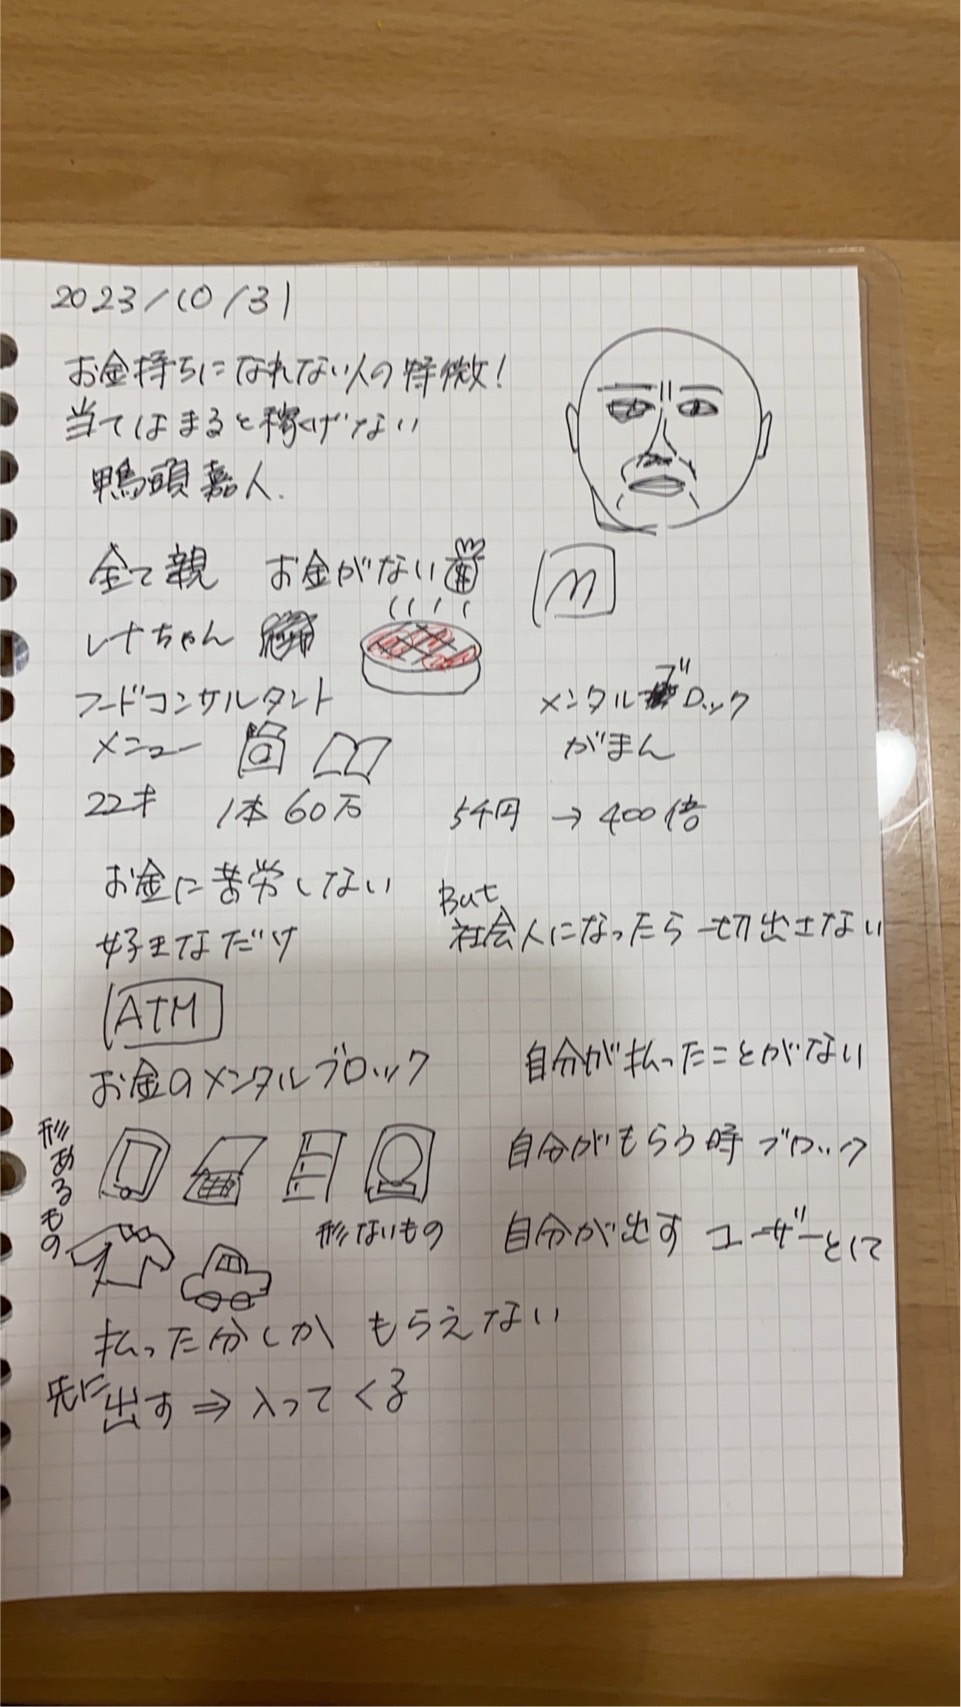 2023/10/31
お金持ちになれない人の特徴!
当てはまると稼げない
鴨頭嘉人.
全て親 お金がない
M
レナちゃん
フードコンサルタント
メンタルブロック
メニュー
がまん
22才 1本60万 54円 → 400倍
お金に苦労しない
But
好きなだけ 社会人になったら一切出さない
ATM
お金のメンタルブロック 自分が払ったことがない
形あるもの
自分がもらう時ブロック
形ないもの 自分が出す ユーザーとして
払った分しか もらえない
先に出す ⇒ 入ってくる